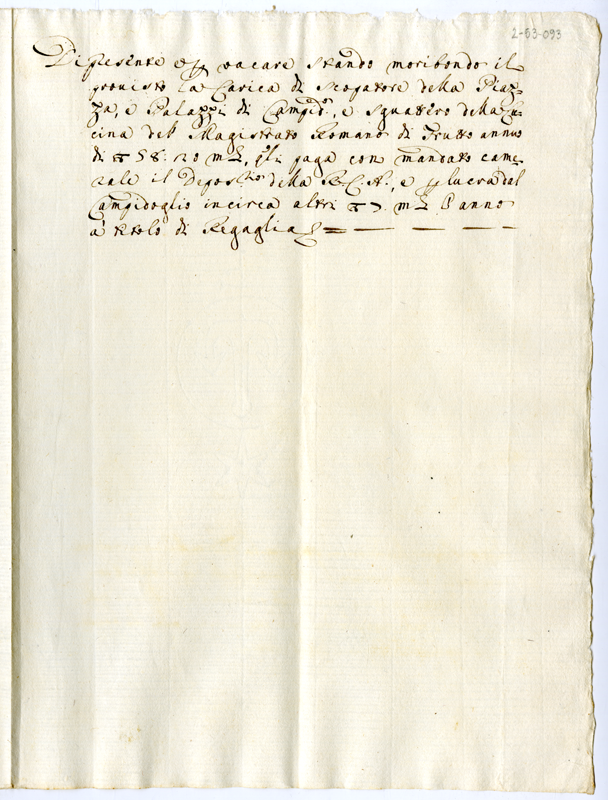 2-63-093
Di presente è p vacare stando moribondo il
provisto la Carica di Scopatore della Piaz-
za, e Palazzi di Campid.o, e Sguattero della Cu-
cina del Magistrato Romano di frutto annuo
di 58:20 m.ta, q.li paga con mandato came-
rale il Depos.rio della R.C.A., e p lucra dal
Campidoglio incirca altri 7 m.ta l'anno
à titolo di Regaglia